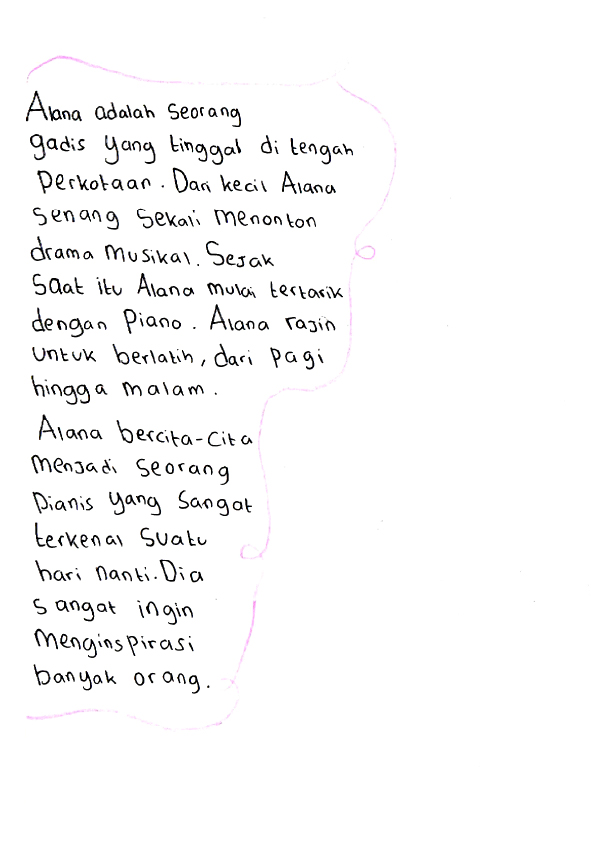 Alana adalah seorang
gadis yang tinggal di tengah
perkotaan. Dari kecil Alana
senang sekali menonton
drama musikal. Sejak
saat itu Alana mulai tertarik
dengan piano. Alana rajin
untuk berlatih, dari pagi
hingga malam.
Alana bercita-cita
menjadi seorang
pianis yang sangat
terkenal suatu
hari nanti. Dia
sangat ingin
menginspirasi
banyak orang.